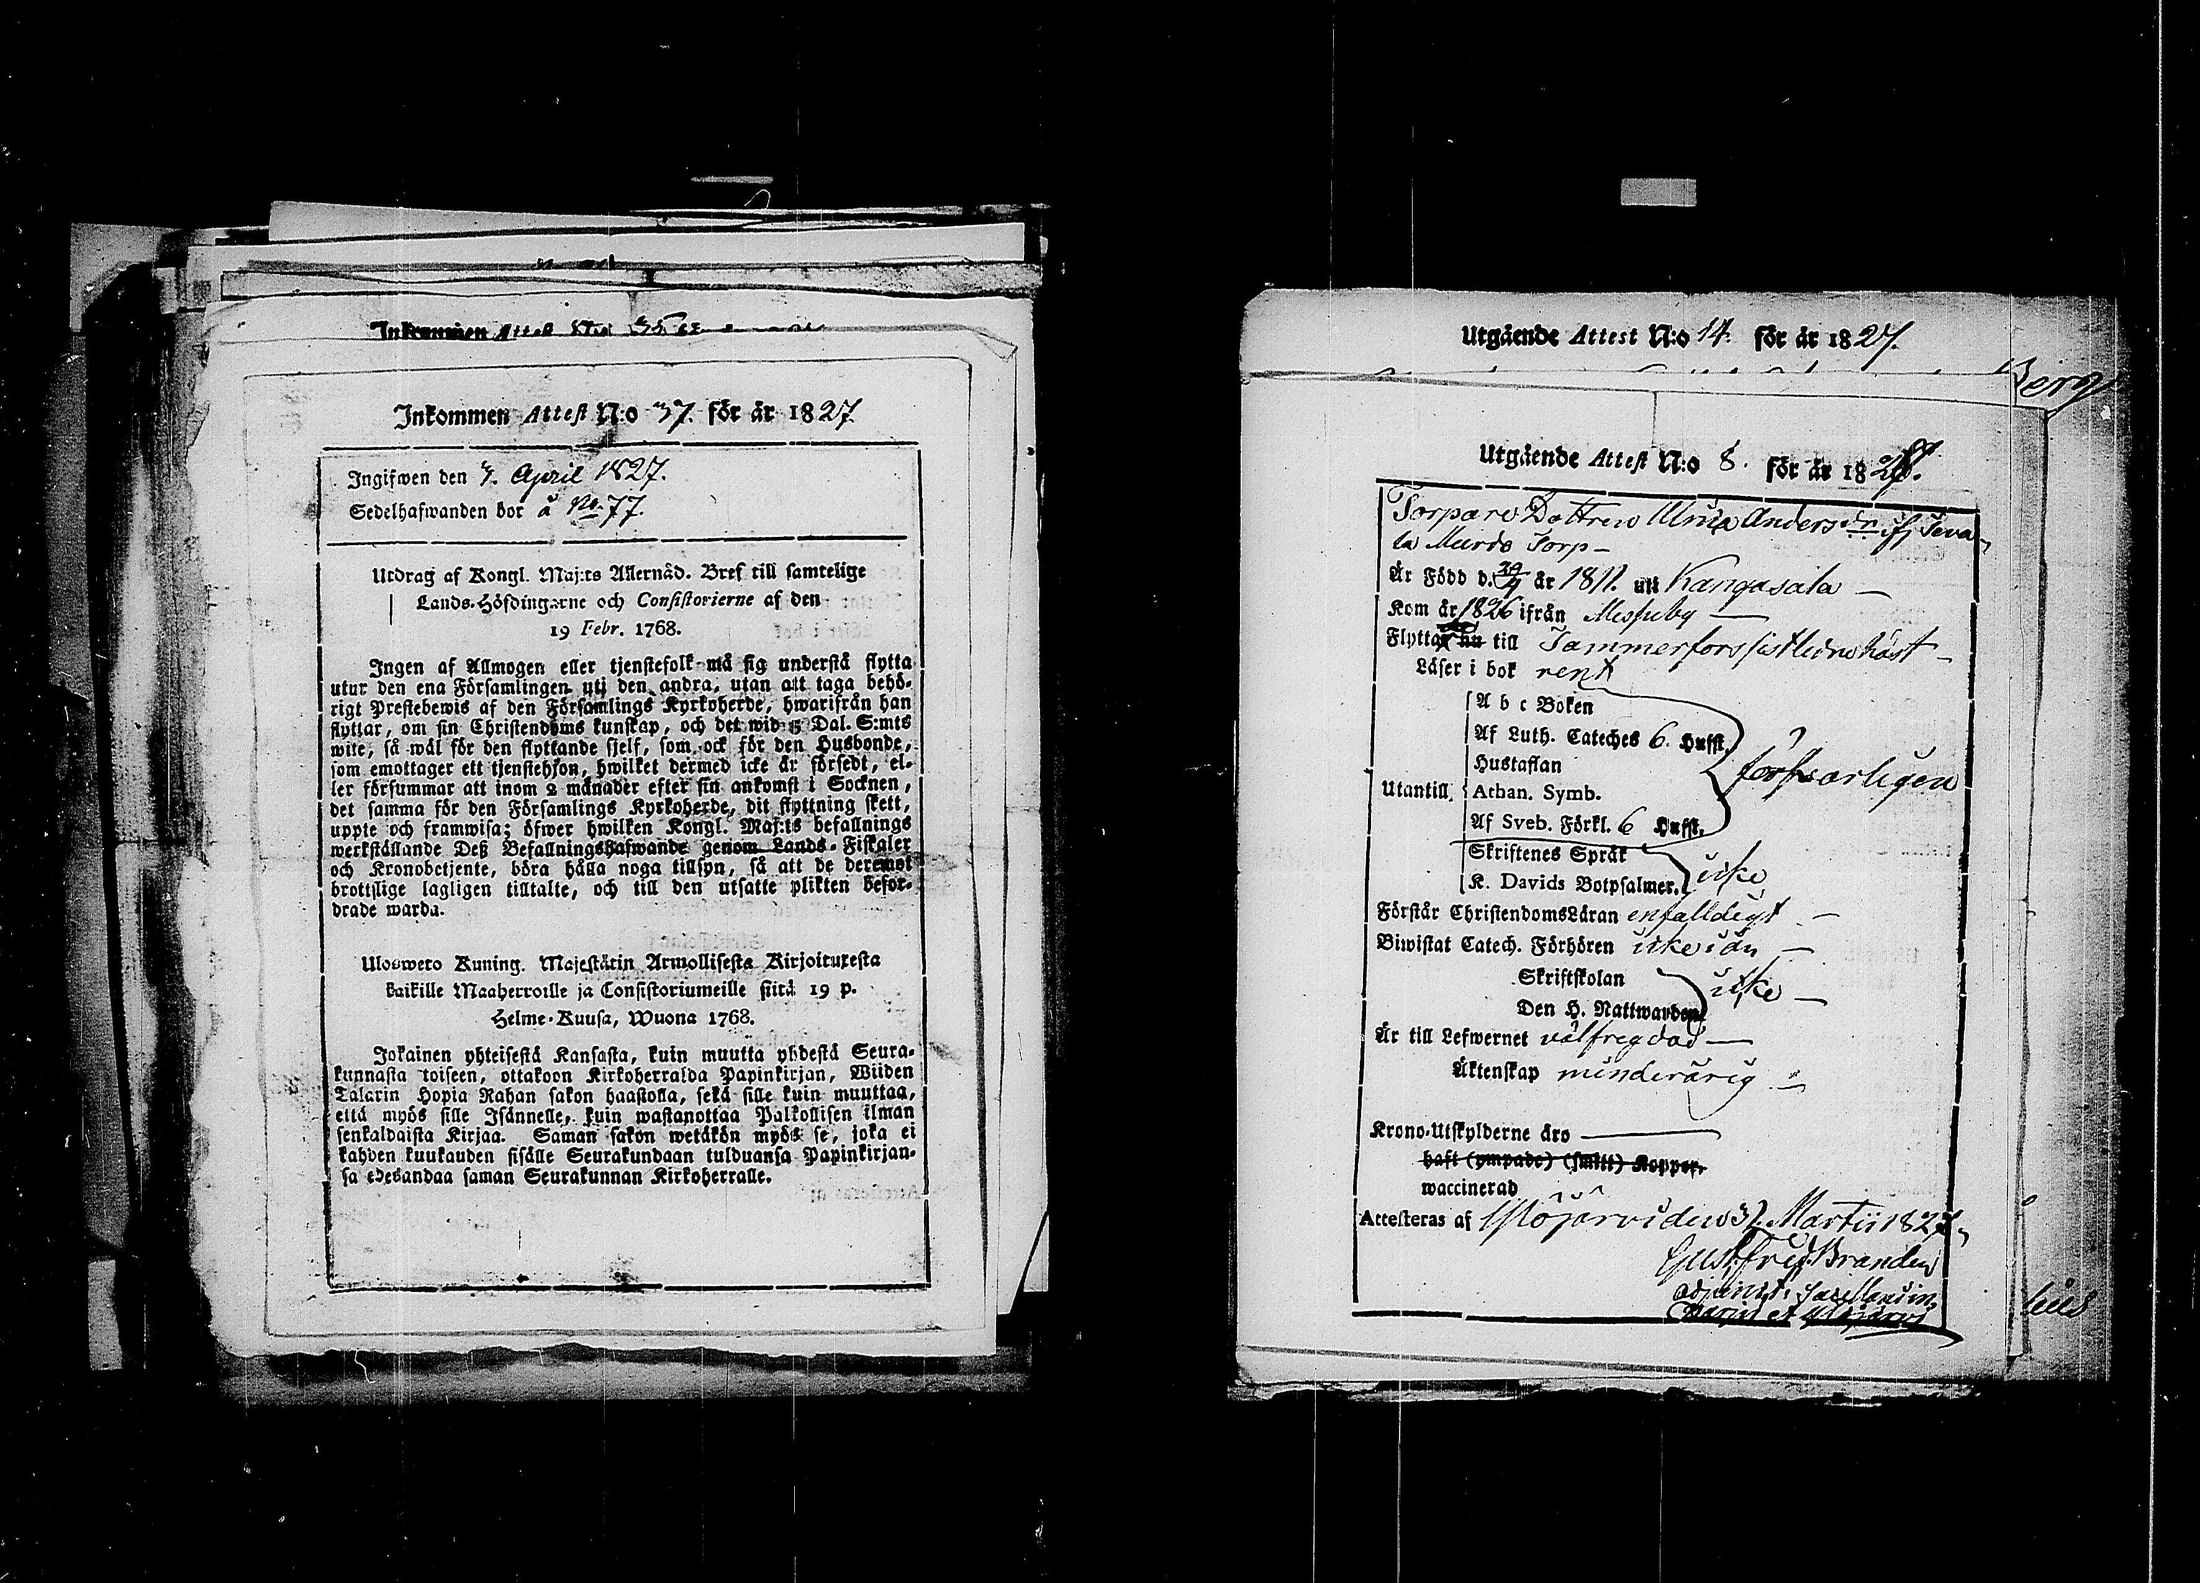 Inkommen Attest N:o 37. för år 1827
Ingifwen den 7. April 1827.
Sedelhafwanden bor å No. 77.
Utdrag af Kongl. Maj:ts Allernåd. Bref till samtelige
Lands-Höfdingarne och Consistorierne af den
19 Febr. 1768.
Ingen af Allmogen eller tjenstefolk må sig understå flytta
utur den ena Församlingen uti den andra, utan att taga behö-
rigt Prestebewis af den Församlings Kyrkoherde, hwarifrån han
flyttar, om sin Christendoms kunskap, och det wid 5 Dal. S:mts
wite, så wäl för den flyttande sjelf, som ock för den Husbonde,
som emottager ett tjenstehjon, hwilket dermed icke är försedt, el-
ler försummar att inom 2 månader efter sin ankomst i Socknen,
det samma för den Församlings Kyrkoherde, dit flyttning skett,
uppte och framwisa; öfwer hwilken Kongl. Maj:ts befallnings
werkställande Deß Befallningshafwande genom Lands-Fiskaler
och Kronobetjente, böra hålla noga tillsyn, så att de deremot
brottslige lagligen tilltalte, och till den utsatte plikten befor-
drade warda.
Uloswero Kuning. Majestätin Armollisesta Kirjoituxesta
kaikille Maaherroille ja Consistoriumeille siitä 19 p.
Helme-Kuusa, Wuona 1768.
Jokainen yhteisestä Kansasta, kuin muutta yhdestä Seura-
kunnasta toiseen, ottakoon Kirkoherralda Papinkirjan, Wiiden
Talarin Hopia Rahan sakon haastolla, sekä sille kuin muuttaa,
että myös sille Isännelle, kuin wastanottaa Palkollisen ilman
senkaldaista Kirjaa. Saman sakon wetäkön myös se, joka ei
kahden kuukauden sisälle Seurakundaan tulduansa Papinkirjan-
sa edesandaa saman Seurakunnan Kirkoherralle.
Utgående Attest N:o 14. för år 1827.
Berg
Utgående Attest N:o 8. för år 1827.
Torpare Dottren Ulrica Anders dr. if. Teva-
la Murdo Torp
Är Född d. 29/9 år 1811. uti Kangasala
Kom år 1826 ifrån Messuby
Flyttar nu till Tammerfors sistledne höst
Läser i bok rent
A b c Boken
Af Luth. Cateches 6. Hufst.
Hustaflan
Utantill Athan. Symb.
Af Sveb. Förkl. 6 Hufst.
försvarligen
Skriftenes Språk
K. Davids Botpsalmer.
icke
Förstår ChristendomsLäran enfalldigt
Biwistat Catech. Förhören icke i år
Skriftskolan
Den H. Nattwarden
icke
Är till Lefwernet välfregdad
Äktenskap minderårig
Krono-Utskylderne äro
haft (ympade) (smitt) Koppor.
waccinerad
Attesteras af Ylöjärvi den 31. Martii 1827.
Gust. Fred. Branden
adjunct. Sacellan in